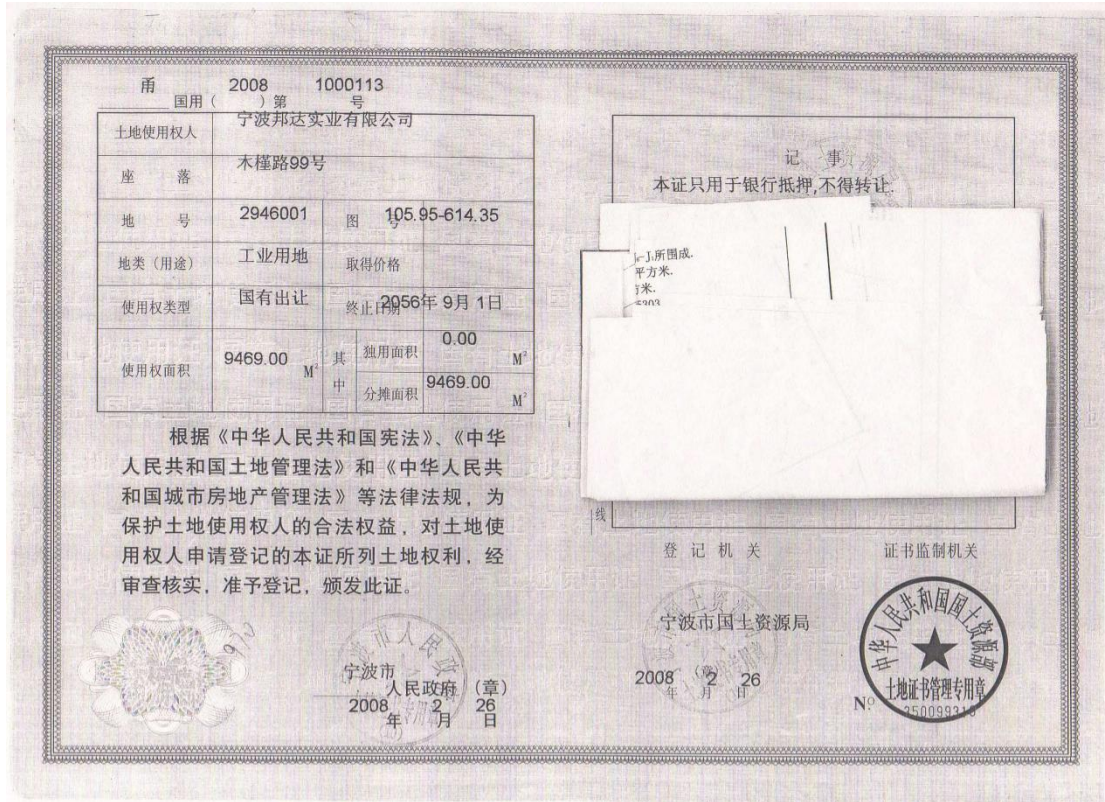 甬 2008 1000113
国用（ ）第 号
土地使用权人 宁波邦达实业有限公司
座 落 木槿路99号
地 号 2946001 图 号 105.95-614.35
地类（用途） 工业用地 取得价格
使用权类型 国有出让 终止日期 2056年 9月 1日
使用权面积 9469.00 M² 其中 独用面积 0.00 M²
分摊面积 9469.00 M²
根据《中华人民共和国宪法》、《中华
人民共和国土地管理法》和《中华人民共
和国城市房地产管理法》等法律法规，为
保护土地使用权人的合法权益，对土地使
用权人申请登记的本证所列土地权利，经
审查核实，准予登记，颁发此证。
宁波市
人民政府（章）
2008 2 26
年 月 日
记 事
本证只用于银行抵押,不得转让.
所围成.
平方米.
方米.
线
登 记 机 关
证书监制机关
宁波市国土资源局
（章）
2008 2 26
年 月 日
中华人民共和国国土资源部
土地证书管理专用章
Nº